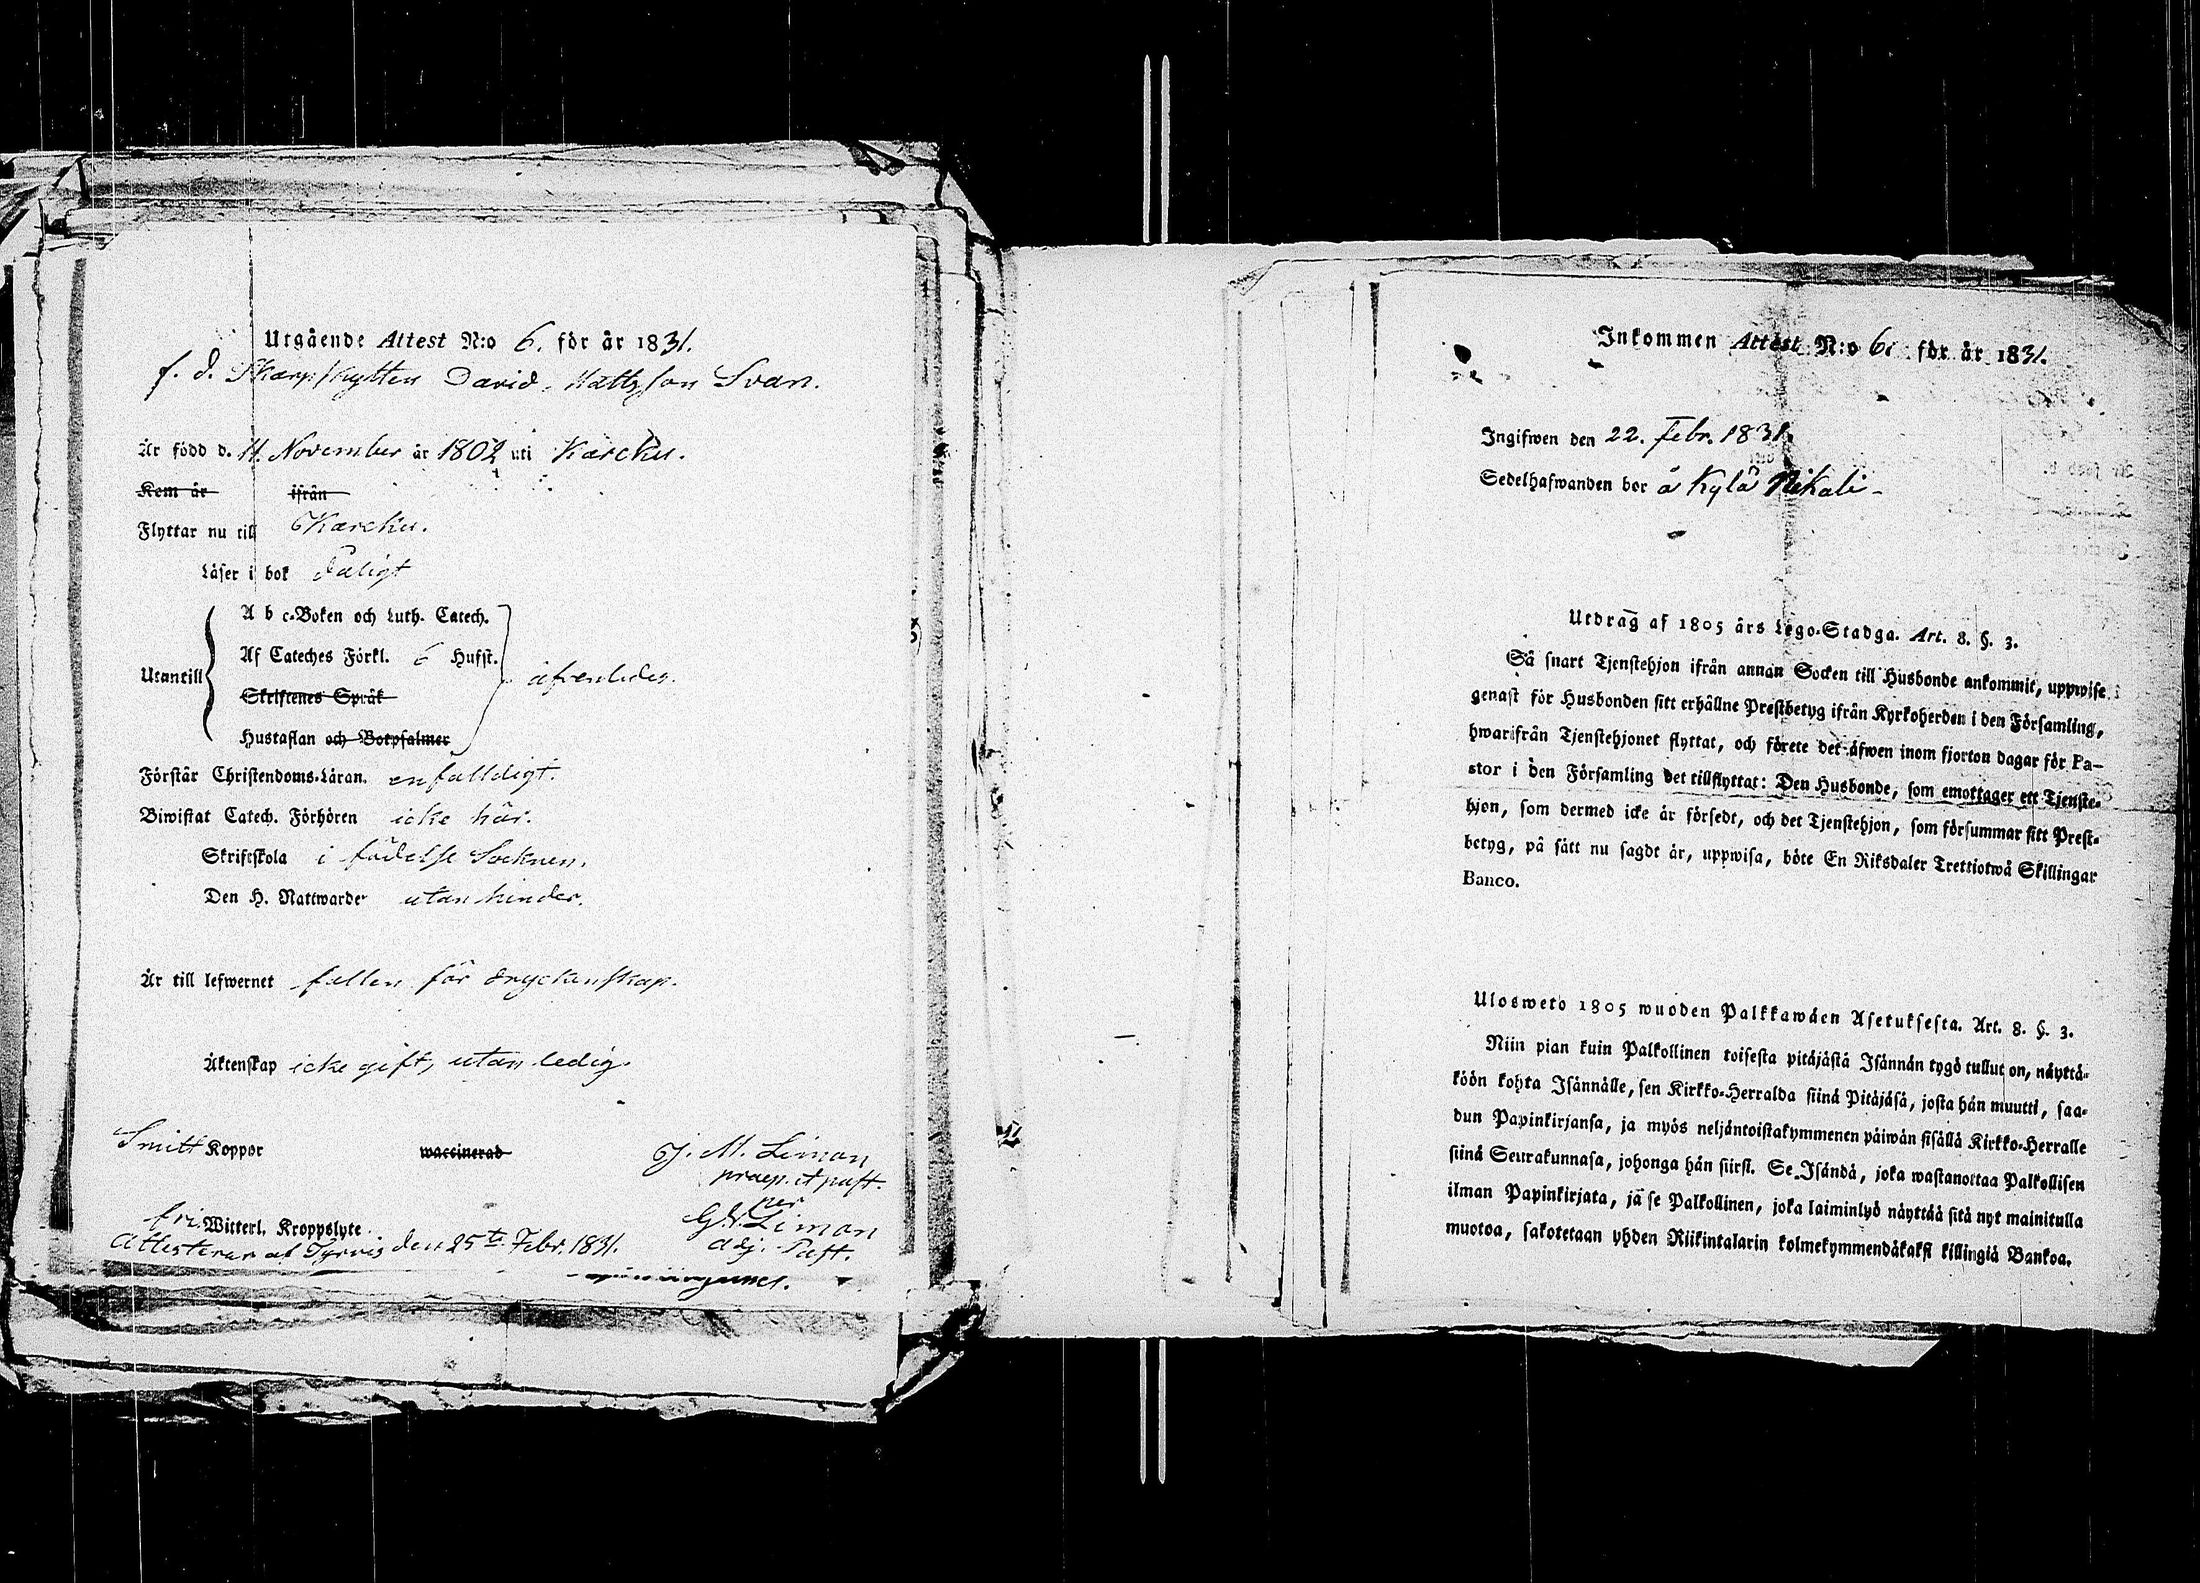 Utgående Attest N:o 6. för år 1831.
f. d. Skarpskytten David Mattsson Svan.
Är född d. 11. November år 1802 uti Karcku.
Kom år ifrån
Flyttar nu till Karcku.
Läser i bok dåligt
A b c-Boken och Luth. Catech.
Af Cateches Förkl. 6 Hufst.
Utantill äfvenledes.
Skriftenes Språk
Hustaflan och Botpsalmer
Förstår Christendoms-Läran. enfalldigt.
Biwistat Catech. Förhören icke här.
Skriftskola i födelse Socknen.
Den H. Nattwarder utan hinder.
Är till lefwernet fallen för dryckenskap.
Äktenskap icke gift, utan ledig.
Smitt Koppor waccinerad
G. M. Limon
præp. et past.
per
fri Witterl. Kroppslyte
G. Limon
Attesterar at Tyrvis den 25te Febr. 1831.
adj. Past.
Inkommen Attest N:o 6. för år 1831.
Ingifwen den 22. Febr. 1831.
Sedelhafwanden bor å Kylä Nikali
Utdrag af 1805 års Lego-Stadga. Art. 8. §. 3.
Så snart Tjenstehjon ifrån annan Socken till Husbonde ankommit, uppwise
genast för Husbonden sitt erhållne Prestbetyg ifrån Kyrkoherden i den Församling,
hwarifrån Tjenstehjonet flyttat, och förete det äfwen inom fjorton dagar för Pa-
stor i den Församling det tillflyttat: Den Husbonde, som emottager ett Tjenste-
hjon, som dermed icke är försedt, och det Tjenstehjon, som försummar sitt Prest-
betyg, på sätt nu sagdt är, uppwisa, böte En Riksdaler Trettiotwå Skillingar
Banco.
Ulosweto 1805 wuoden Palkkawäen Asetuksesta. Art. 8. §. 3.
Niin pian kuin Palkollinen toisesta pitäjästä Isännän tygö tullut on, näyttä-
köön kohta Isännälle, sen Kirkko-Herralda siinä Pitäjäsä, josta hän muutti, saa-
dun Papinkirjansa, ja myös neljäntoistakymmenen päiwän sisällä Kirkko-Herralle
siinä Seurakunnasa, johonga hän siirsi. Se Isändä, joka wastanottaa Palkollisen
ilman Papinkirjata, ja se Palkollinen, joka laiminlyö näyttää sitä nyt mainitulla
muotoa, sakotetaan yhden Riikintalarin kolmekymmendäkaksi killingiä Bankoa.